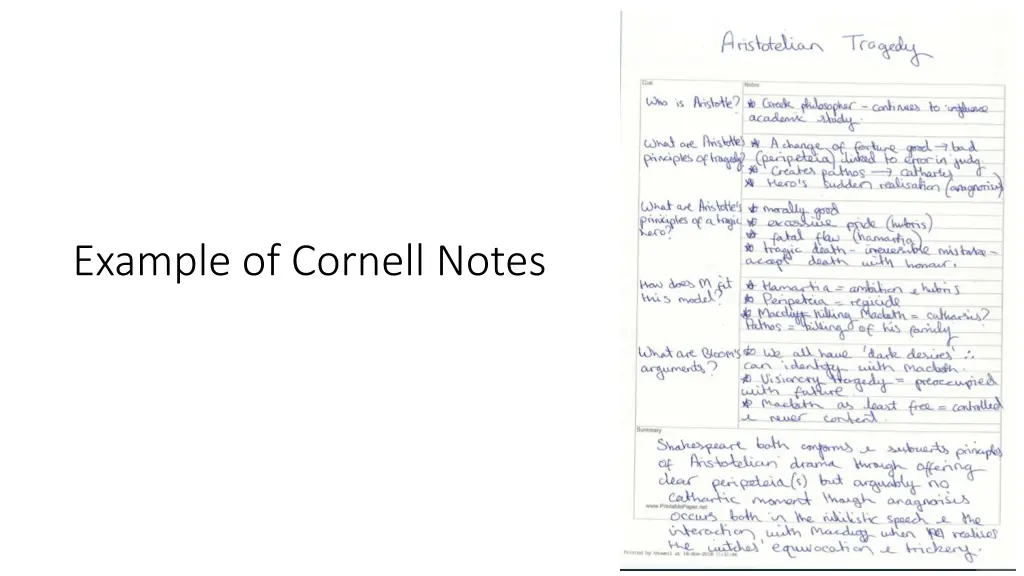 Example of Cornell Notes
Aristotelian Tragedy
Cue
Notes
Who is Aristotle?
* Greek philosopher - continues to influence
academic study.
What are Aristotle's
principles of tragedy?
* A change of fortune good → bad
(peripeteia) linked to error in judg.
* Creates pathos → catharsis
* Hero's sudden realisation (anagnorisis)
What are Aristotle's
principles of a tragic
hero?
* morally good
* excessive pride (hubris)
* fatal flaw (hamartia)
* tragic death - irreversible mistake -
accept death with honour.
How does M fit
this model?
* Hamartia = ambition & hubris
* Peripeteia = regicide
* Macduff killing Macbeth = catharsis?
Pathos = killing of his family
What are Bloom's
arguments?
* We all have 'dark desires' ∴
can identify with Macbeth.
* Visionary tragedy = preoccupied
with future
* Macbeth as least free = controlled
& never content.
Summary
Shakespeare both conforms & subverts principles
of Aristotelian drama through offering
clear peripeteia(s) but arguably no
cathartic moment though anagnoisis
www.PrintablePaper.net
occurs both in the nihilistic speech & the
interaction with Macduff when realises
the witches' equivocation & trickery.
Printed by